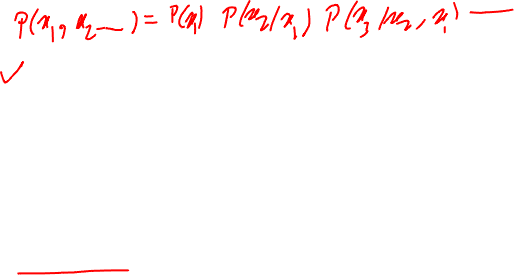 P(x₁, x₂ __) = P(x₁) P(x₂/x₁) P(x₃/x₂, x₁) __
✓